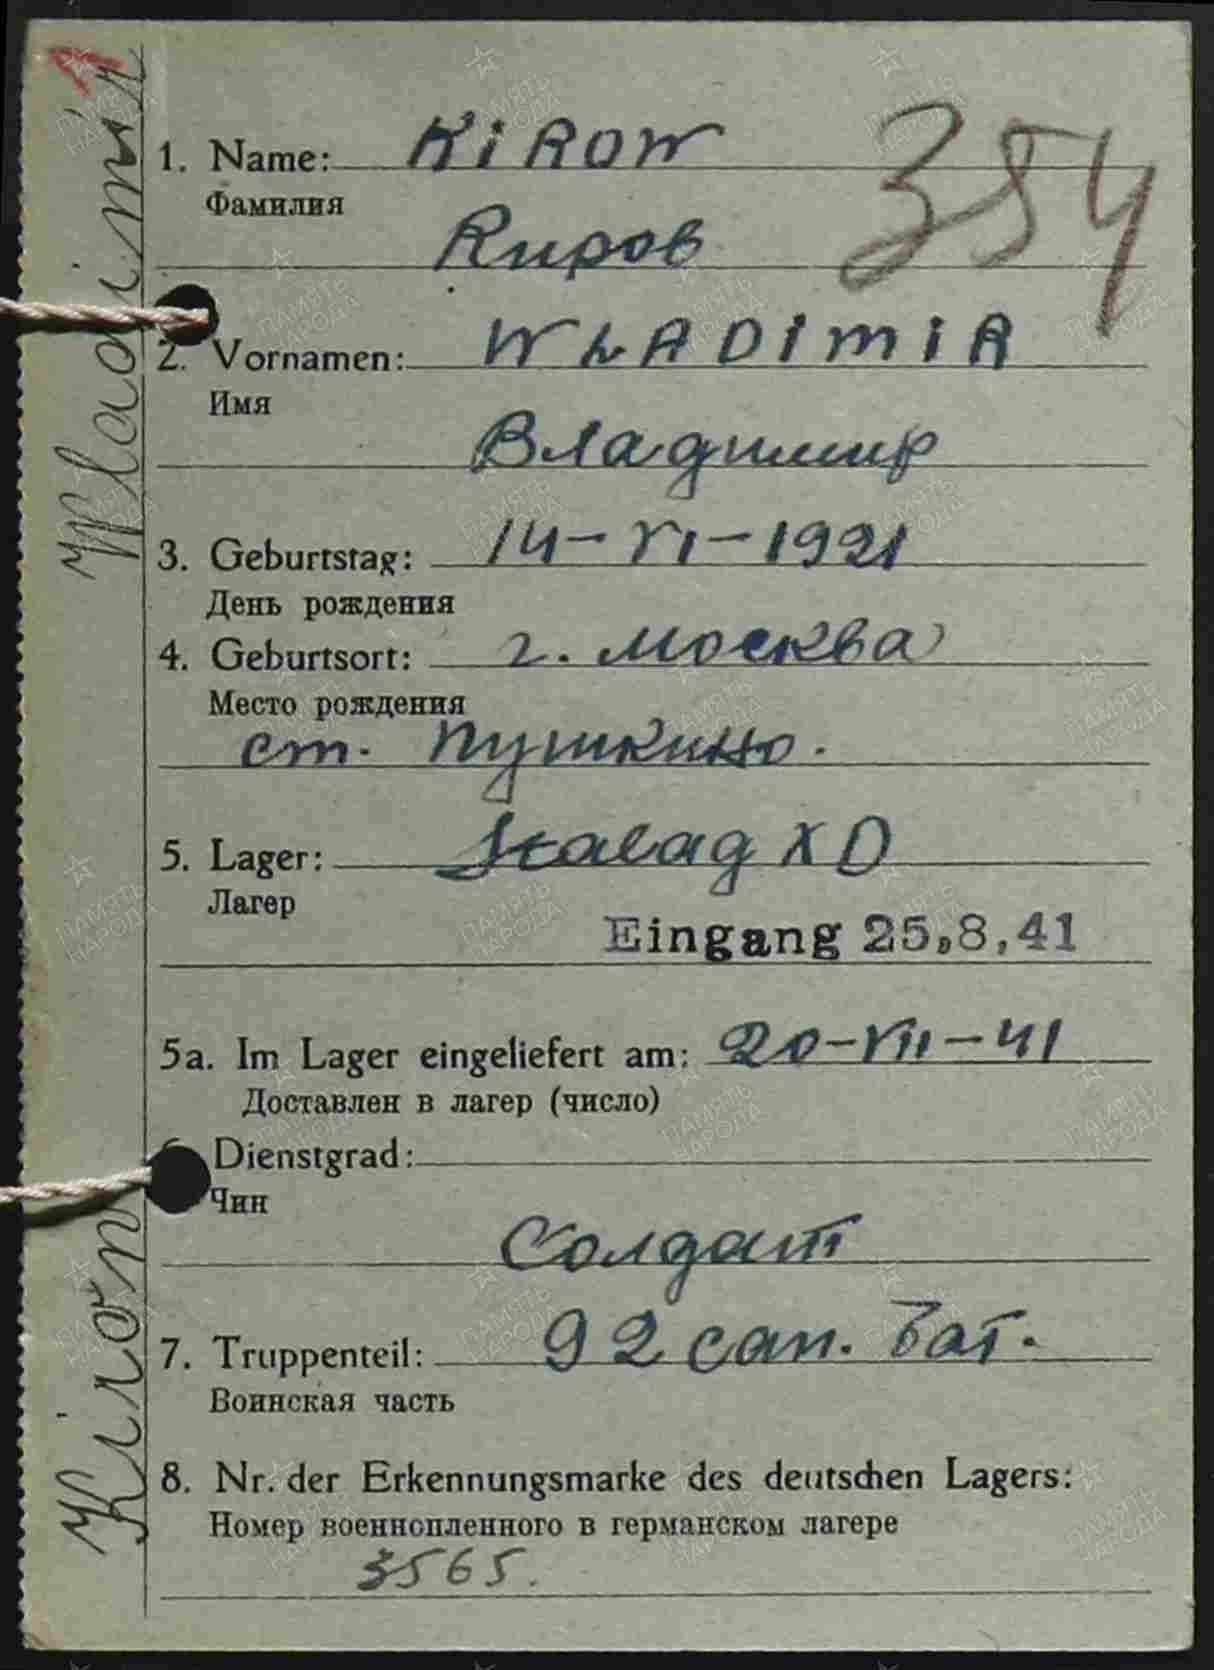 1. Name: KiROW
Фамилия
Киров
354
2. Vornamen: WLADiMiR
Имя
Владимир
3. Geburtstag: 14-VI-1921
День рождения
4. Geburtsort: г. Москва
Место рождения
ст. Пушкино.
5. Lager: Stalag X D
Лагер
Eingang 25,8,41
5a. Im Lager eingeliefert am: 20-VII-41
Доставлен в лагер (число)
Dienstgrad:
Чин
Солдат
7. Truppenteil: 92 сап. бат.
Воинская часть
8. Nr. der Erkennungsmarke des deutschen Lagers:
Номер военнопленного в германском лагере
3565.
Kirow Wladimir
ПАМЯТЬ НАРОДА